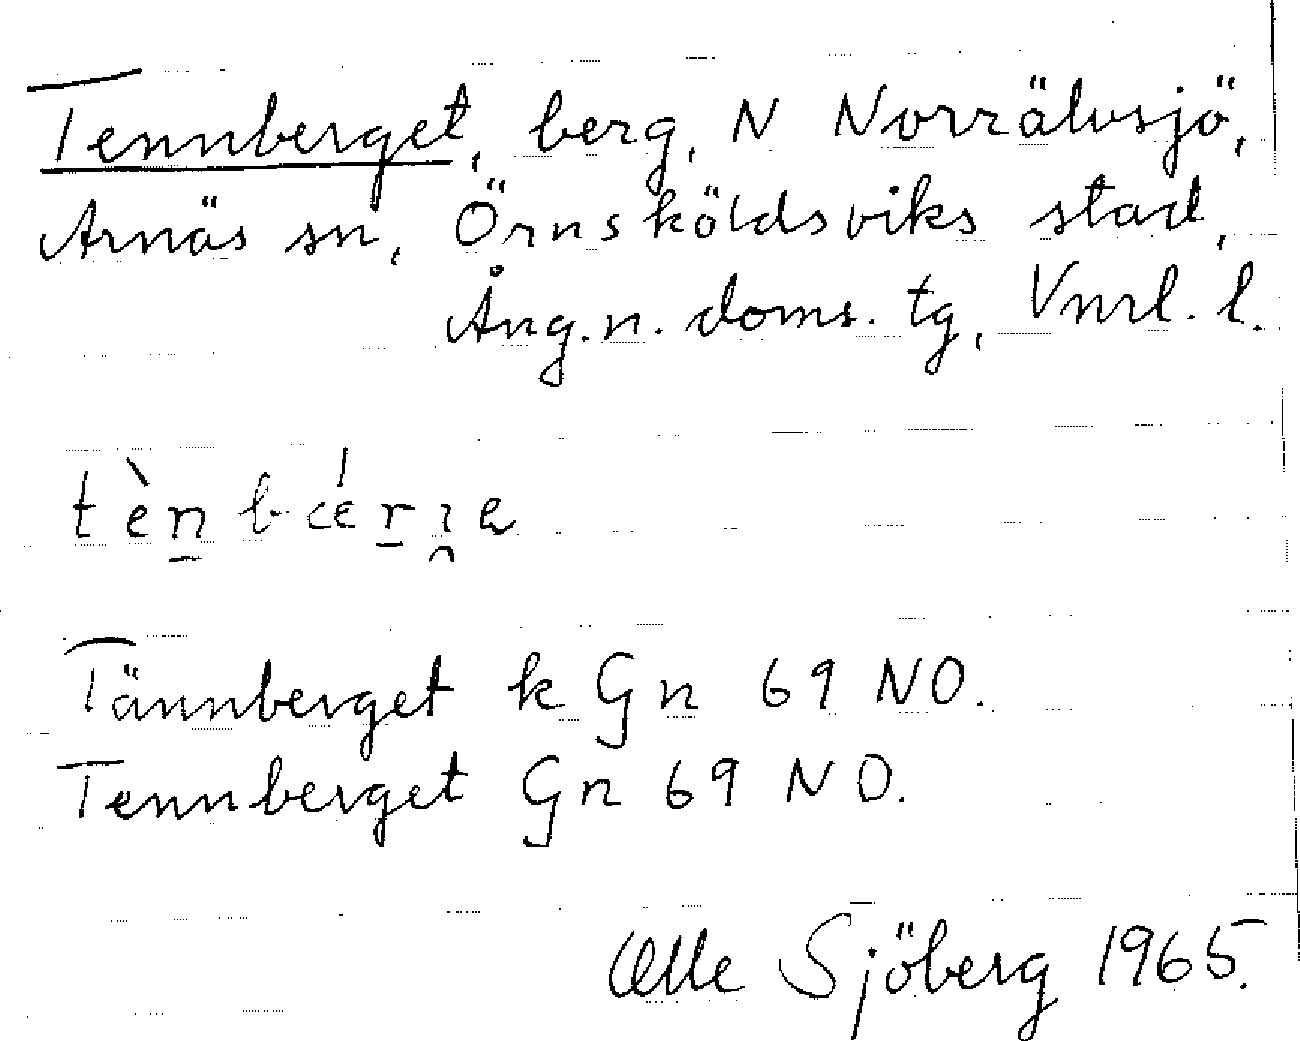 Tennberget, berg, N Norrälvsjö,
Arnäs sn, Örnsköldsviks stad,
Ång.n. doms. tg, Vnrl. l.
Tännberget k Gn 69 NO.
Tennberget Gn 69 NO.
Olle Sjöberg 1965.